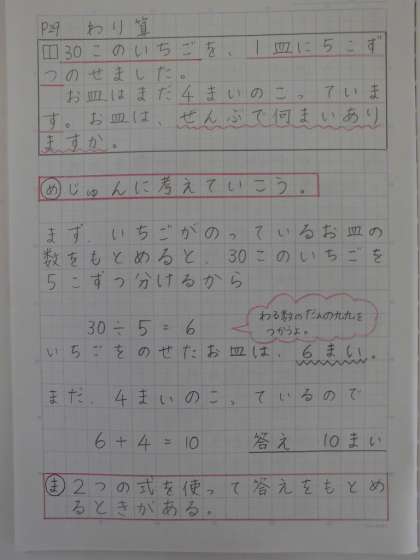 P29 わり算
1 30このいちごを、1皿に5こず
つのせました。
お皿はまだ4まいのこっていま
す。お皿は、ぜんぶで何まいあり
ますか。
め じゅんに考えていこう。
まず、いちごがのっているお皿の
数をもとめると、30このいちごを
5こずつ分けるから
30÷5=6
わる数のだんの九九を
つかうよ。
いちごをのせたお皿は、6まい。
まだ、4まいのこっているので
6+4=10 答え 10まい
ま 2つの式を使って答えをもとめ
るときがある。